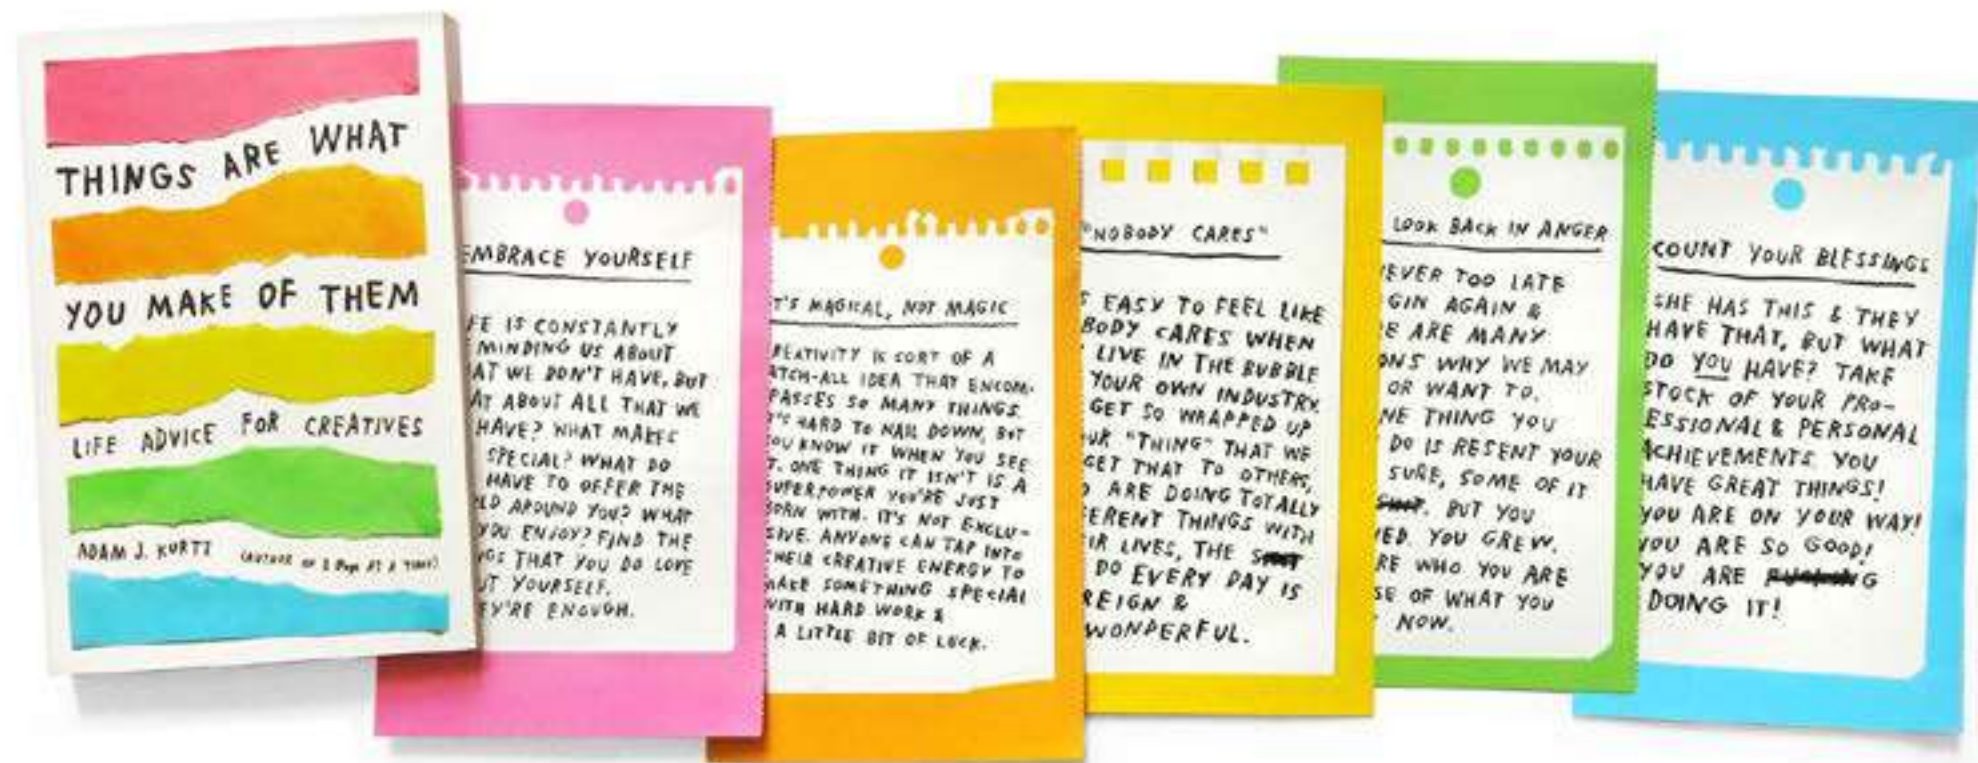 THINGS ARE WHAT
YOU MAKE OF THEM
LIFE ADVICE FOR CREATIVES
ADAM J. KURTZ (AUTHOR OF 1 Page AT A TIME)
EMBRACE YOURSELF
FE IS CONSTANTLY
MINDING US ABOUT
AT WE DON'T HAVE, BUT
AT ABOUT ALL THAT WE
HAVE? WHAT MAKES
SPECIAL? WHAT DO
HAVE TO OFFER THE
LD AROUND YOU? WHAT
YOU ENJOY? FIND THE
GS THAT YOU DO LOVE
UT YOURSELF.
EY'RE ENOUGH.
T'S MAGICAL, NOT MAGIC
REATIVITY IS SORT OF A
ATCH-ALL IDEA THAT ENCOM-
PASSES SO MANY THINGS.
T'S HARD TO NAIL DOWN, BUT
OU KNOW IT WHEN YOU SEE
T. ONE THING IT ISN'T IS A
SUPERPOWER YOU'RE JUST
BORN WITH. IT'S NOT EXCLU-
SIVE. ANYONE CAN TAP INTO
HEIR CREATIVE ENERGY TO
MAKE SOMETHING SPECIAL
WITH HARD WORK &
A LITTLE BIT OF LUCK.
"NOBODY CARES"
S EASY TO FEEL LIKE
BODY CARES WHEN
LIVE IN THE BUBBLE
YOUR OWN INDUSTRY.
GET SO WRAPPED UP
UR "THING" THAT WE
GET THAT TO OTHERS,
O ARE DOING TOTALLY
FERENT THINGS WITH
EIR LIVES, THE
DO EVERY DAY IS
REIGN &
WONDERFUL.
LOOK BACK IN ANGER
EVER TOO LATE
GIN AGAIN &
RE ARE MANY
ONS WHY WE MAY
OR WANT TO.
NE THING YOU
DO IS RESENT YOUR
SURE, SOME OF IT
BUT YOU
NED. YOU GREW.
RE WHO YOU ARE
SE OF WHAT YOU
NOW.
COUNT YOUR BLESSINGS
SHE HAS THIS & THEY
HAVE THAT, BUT WHAT
DO YOU HAVE? TAKE
STOCK OF YOUR PRO-
ESSIONAL & PERSONAL
ACHIEVEMENTS. YOU
HAVE GREAT THINGS!
YOU ARE ON YOUR WAY!
YOU ARE SO GOOD!
YOU ARE
DOING IT!